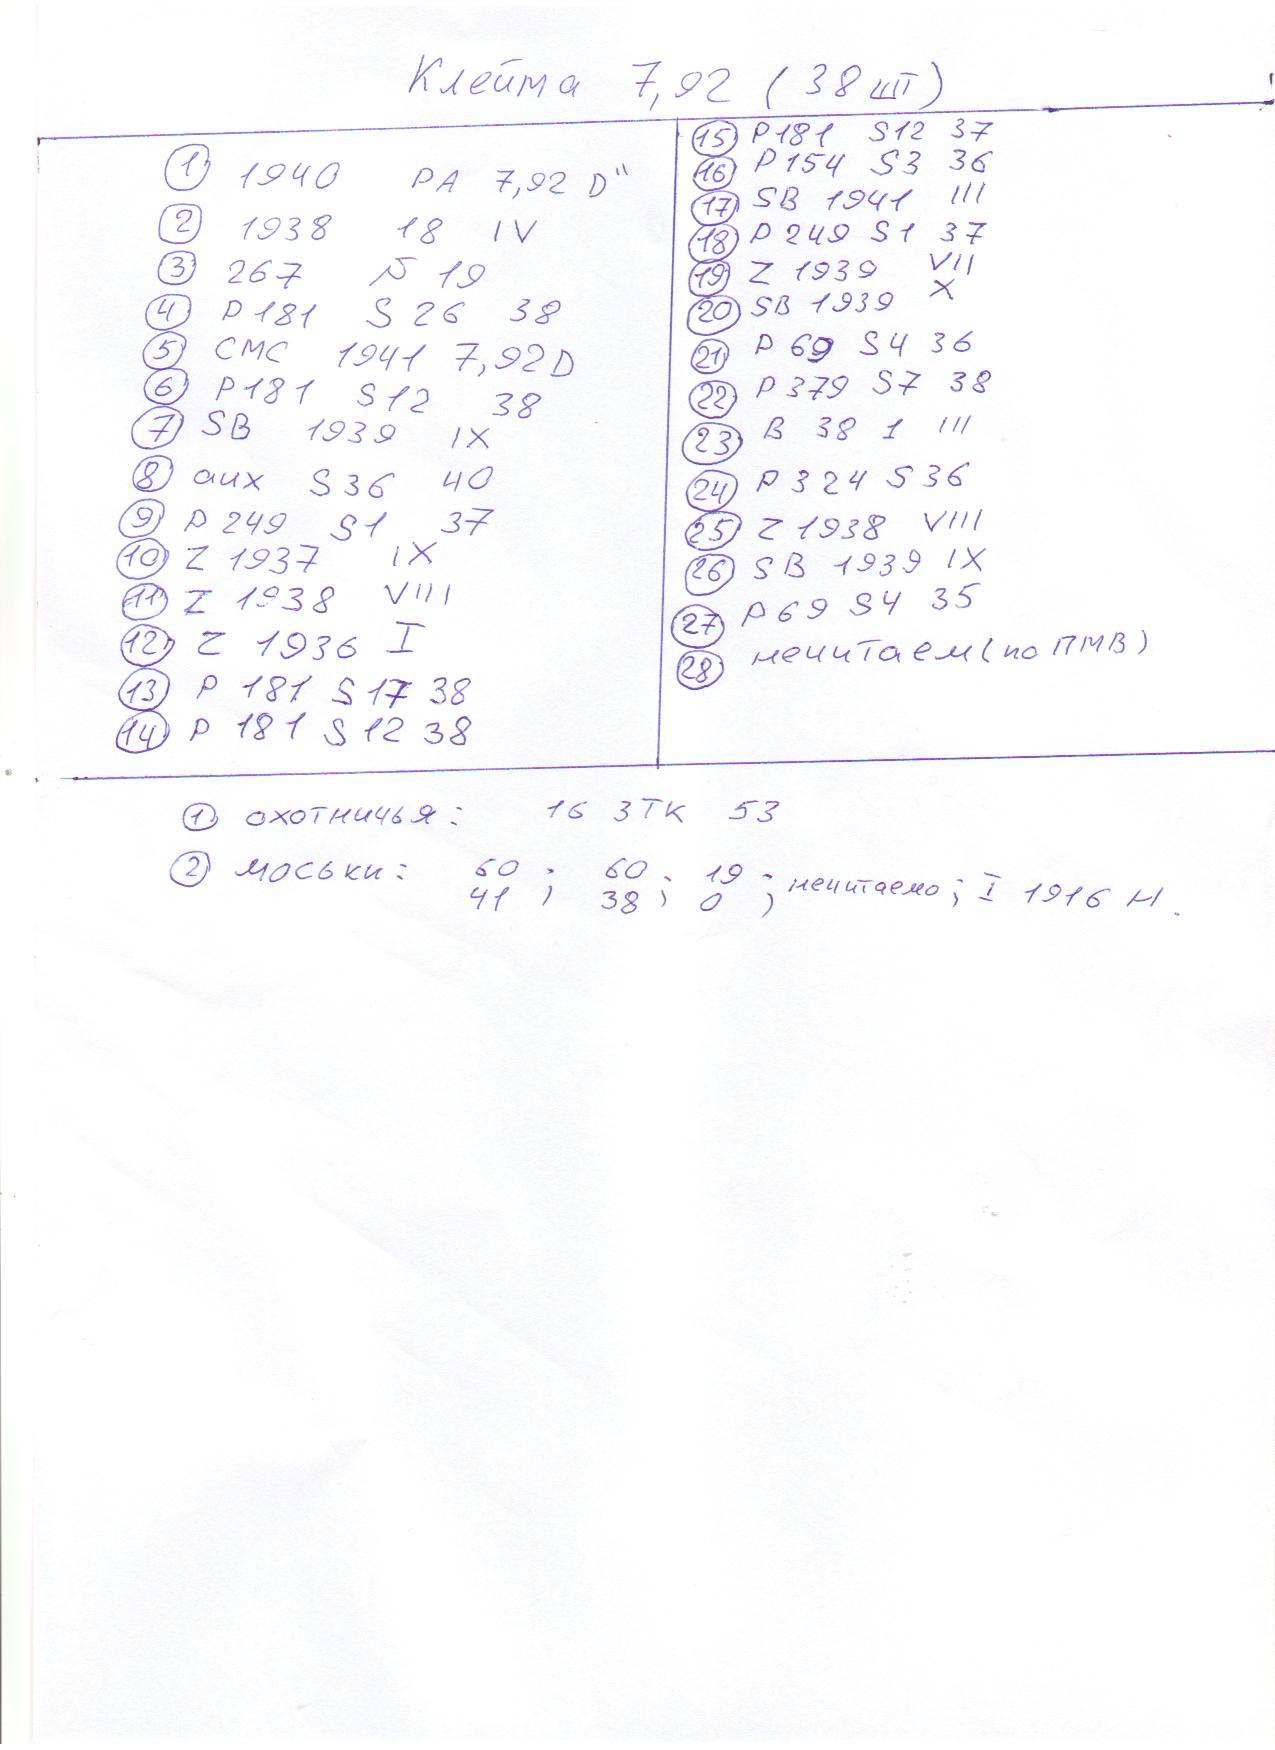 Клейма 7,92 (38 шт)
① 1940 PA 7,92 D"
② 1938 18 IV
③ 267 19
④ P181 S26 38
⑤ СМС 1941 7,92D
⑥ P181 S12 38
⑦ SB 1939 IX
⑧ aux S36 40
⑨ P249 S1 37
⑩ Z 1937 IX
⑪ Z 1938 VIII
⑫ Z 1936 I
⑬ P 181 S17 38
⑭ P 181 S12 38
⑮ P181 S12 37
⑯ P154 S3 36
⑰ SB 1941 III
⑱ P249 S1 37
⑲ Z 1939 VII
⑳ SB 1939 X
㉑ P 69 S4 36
㉒ P379 S7 38
㉓ B 38 1 III
㉔ P324 S36
㉕ Z 1938 VIII
㉖ SB 1939 IX
㉗ P69 S4 35
㉘ нечитаем (по ПМВ)
① охотничья: 16 ЗТК 53
② моськи: 60 ; 60 ; 19 ; нечитаемо; I 1916 Н.
41 38 0